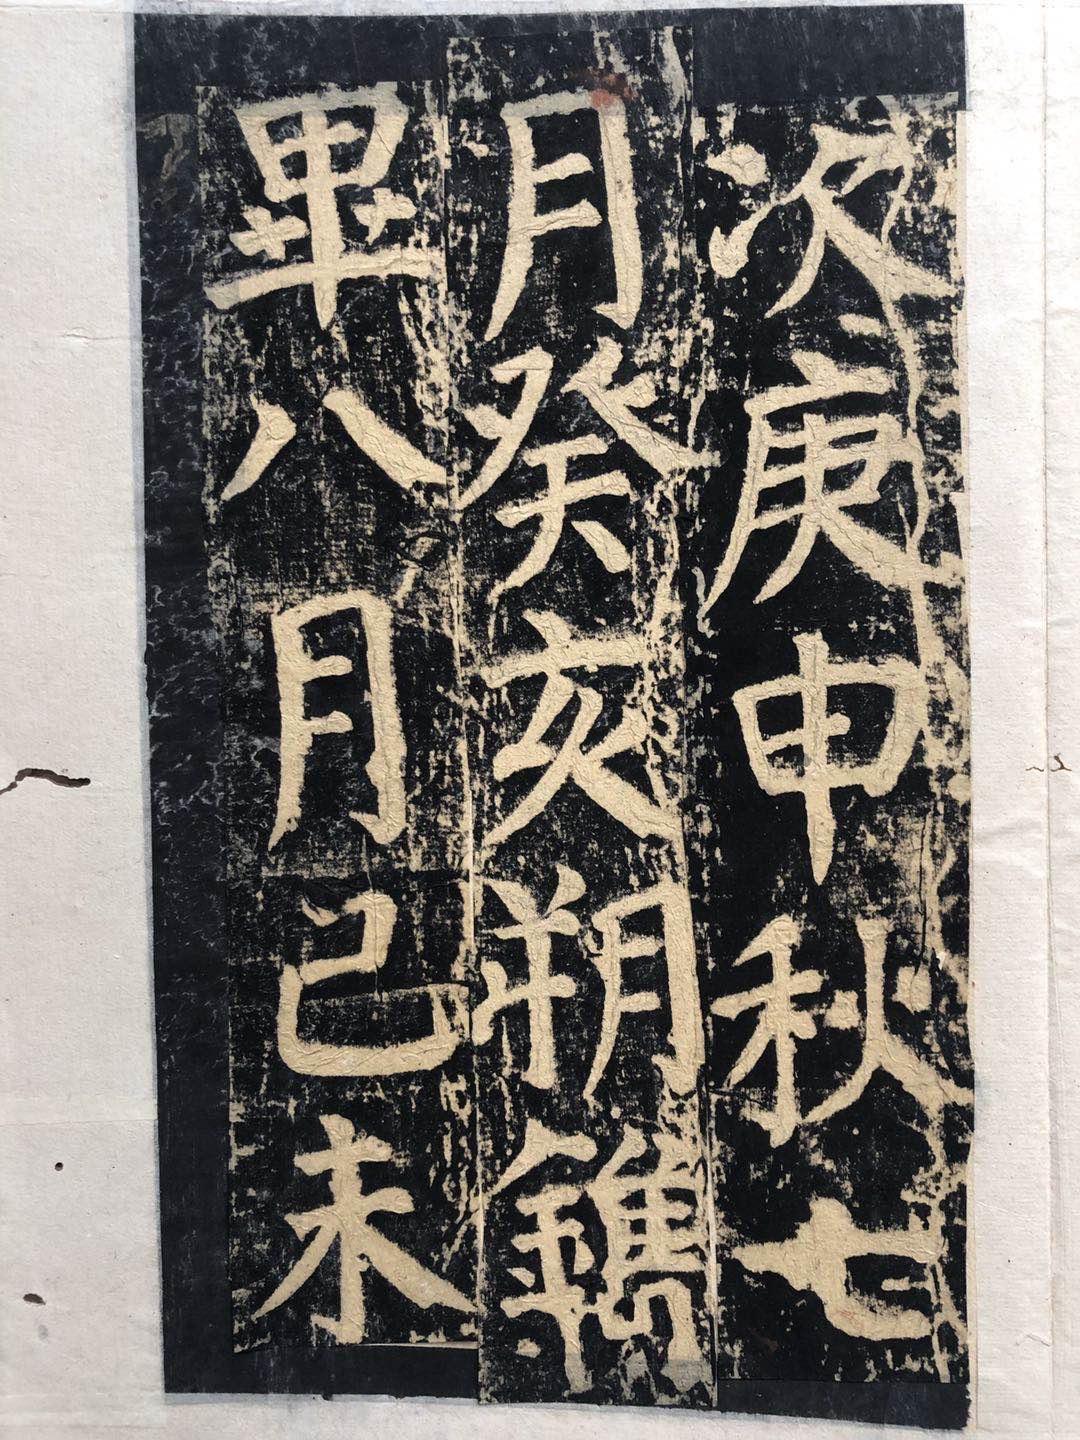 次庚申秋七
月癸亥朔鐫
畢八月己未